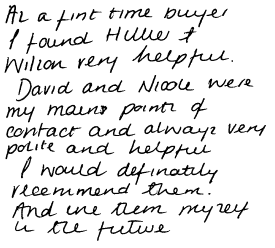 As a first time buyer
I found Hillier &
Wilson very helpful.
David and Nicole were
my main points of
contact and always very
polite and helpful
I would definately
recommend them.
And use them myself
in the future